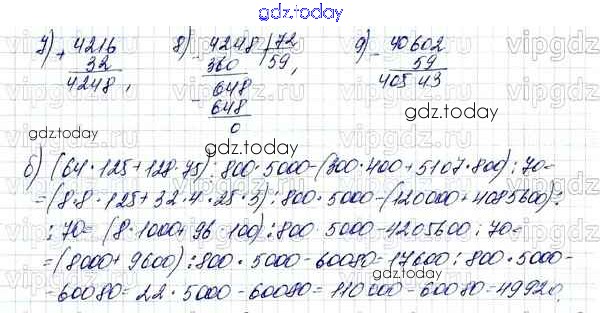 gdz.today
7) + 4216
32
4248,
8) - 4248 | 72
360 59,
- 648
648
0
9) - 40602
59
40543
gdz.today
gdz.today
б) (64·125+128·75):800·5000-(300·400+5107·800):70=
=(8·8·125+32·4·25·3):800·5000-(120000+4085600):
:70=(8·1000+96·100):800·5000-4205600:70=
=(8000+9600):800·5000-60080=17600:800·5000-
-60080=22·5000-60080=110000-60080=49920.
gdz.today
gdz.today